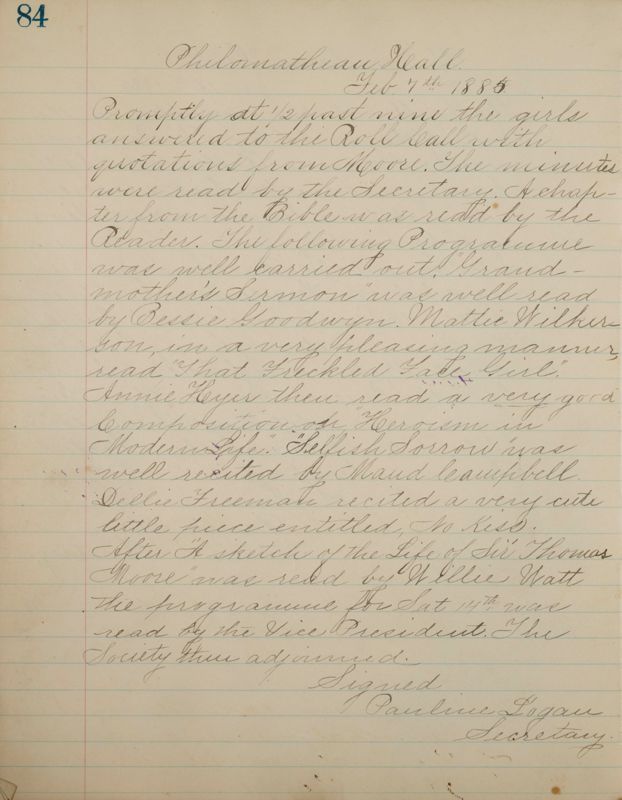 84
Philomathean Hall.
Feb 7th 1885
Promptly at 1/2 past nine the girls
answered to the Roll Call with
quotations from Moore. The minutes
were read by the Secretary. A chap-
ter from the Bible was read by the
Reader. The following Programme
was well carried out. "Grand-
mother's Sermon" was well read
by Bessie Goodwyn. Mattie Wilker-
son, in a very pleasing manner,
read "That Freckled Face Girl".
Annie Heyer then read a very good
Composition on "Heroism in
Modern Life". "Selfish Sorrow" was
well recited by Maud Campbell.
Dellie Freeman recited a very cute
little piece entitled, No Kiss.
After "A sketch of the Life of Sir Thomas
Moore" was read by Willie Watt
the programme for Sat 14th was
read by the Vice President. The
Society then adjourned.
Signed
Pauline Logan
Secretary.